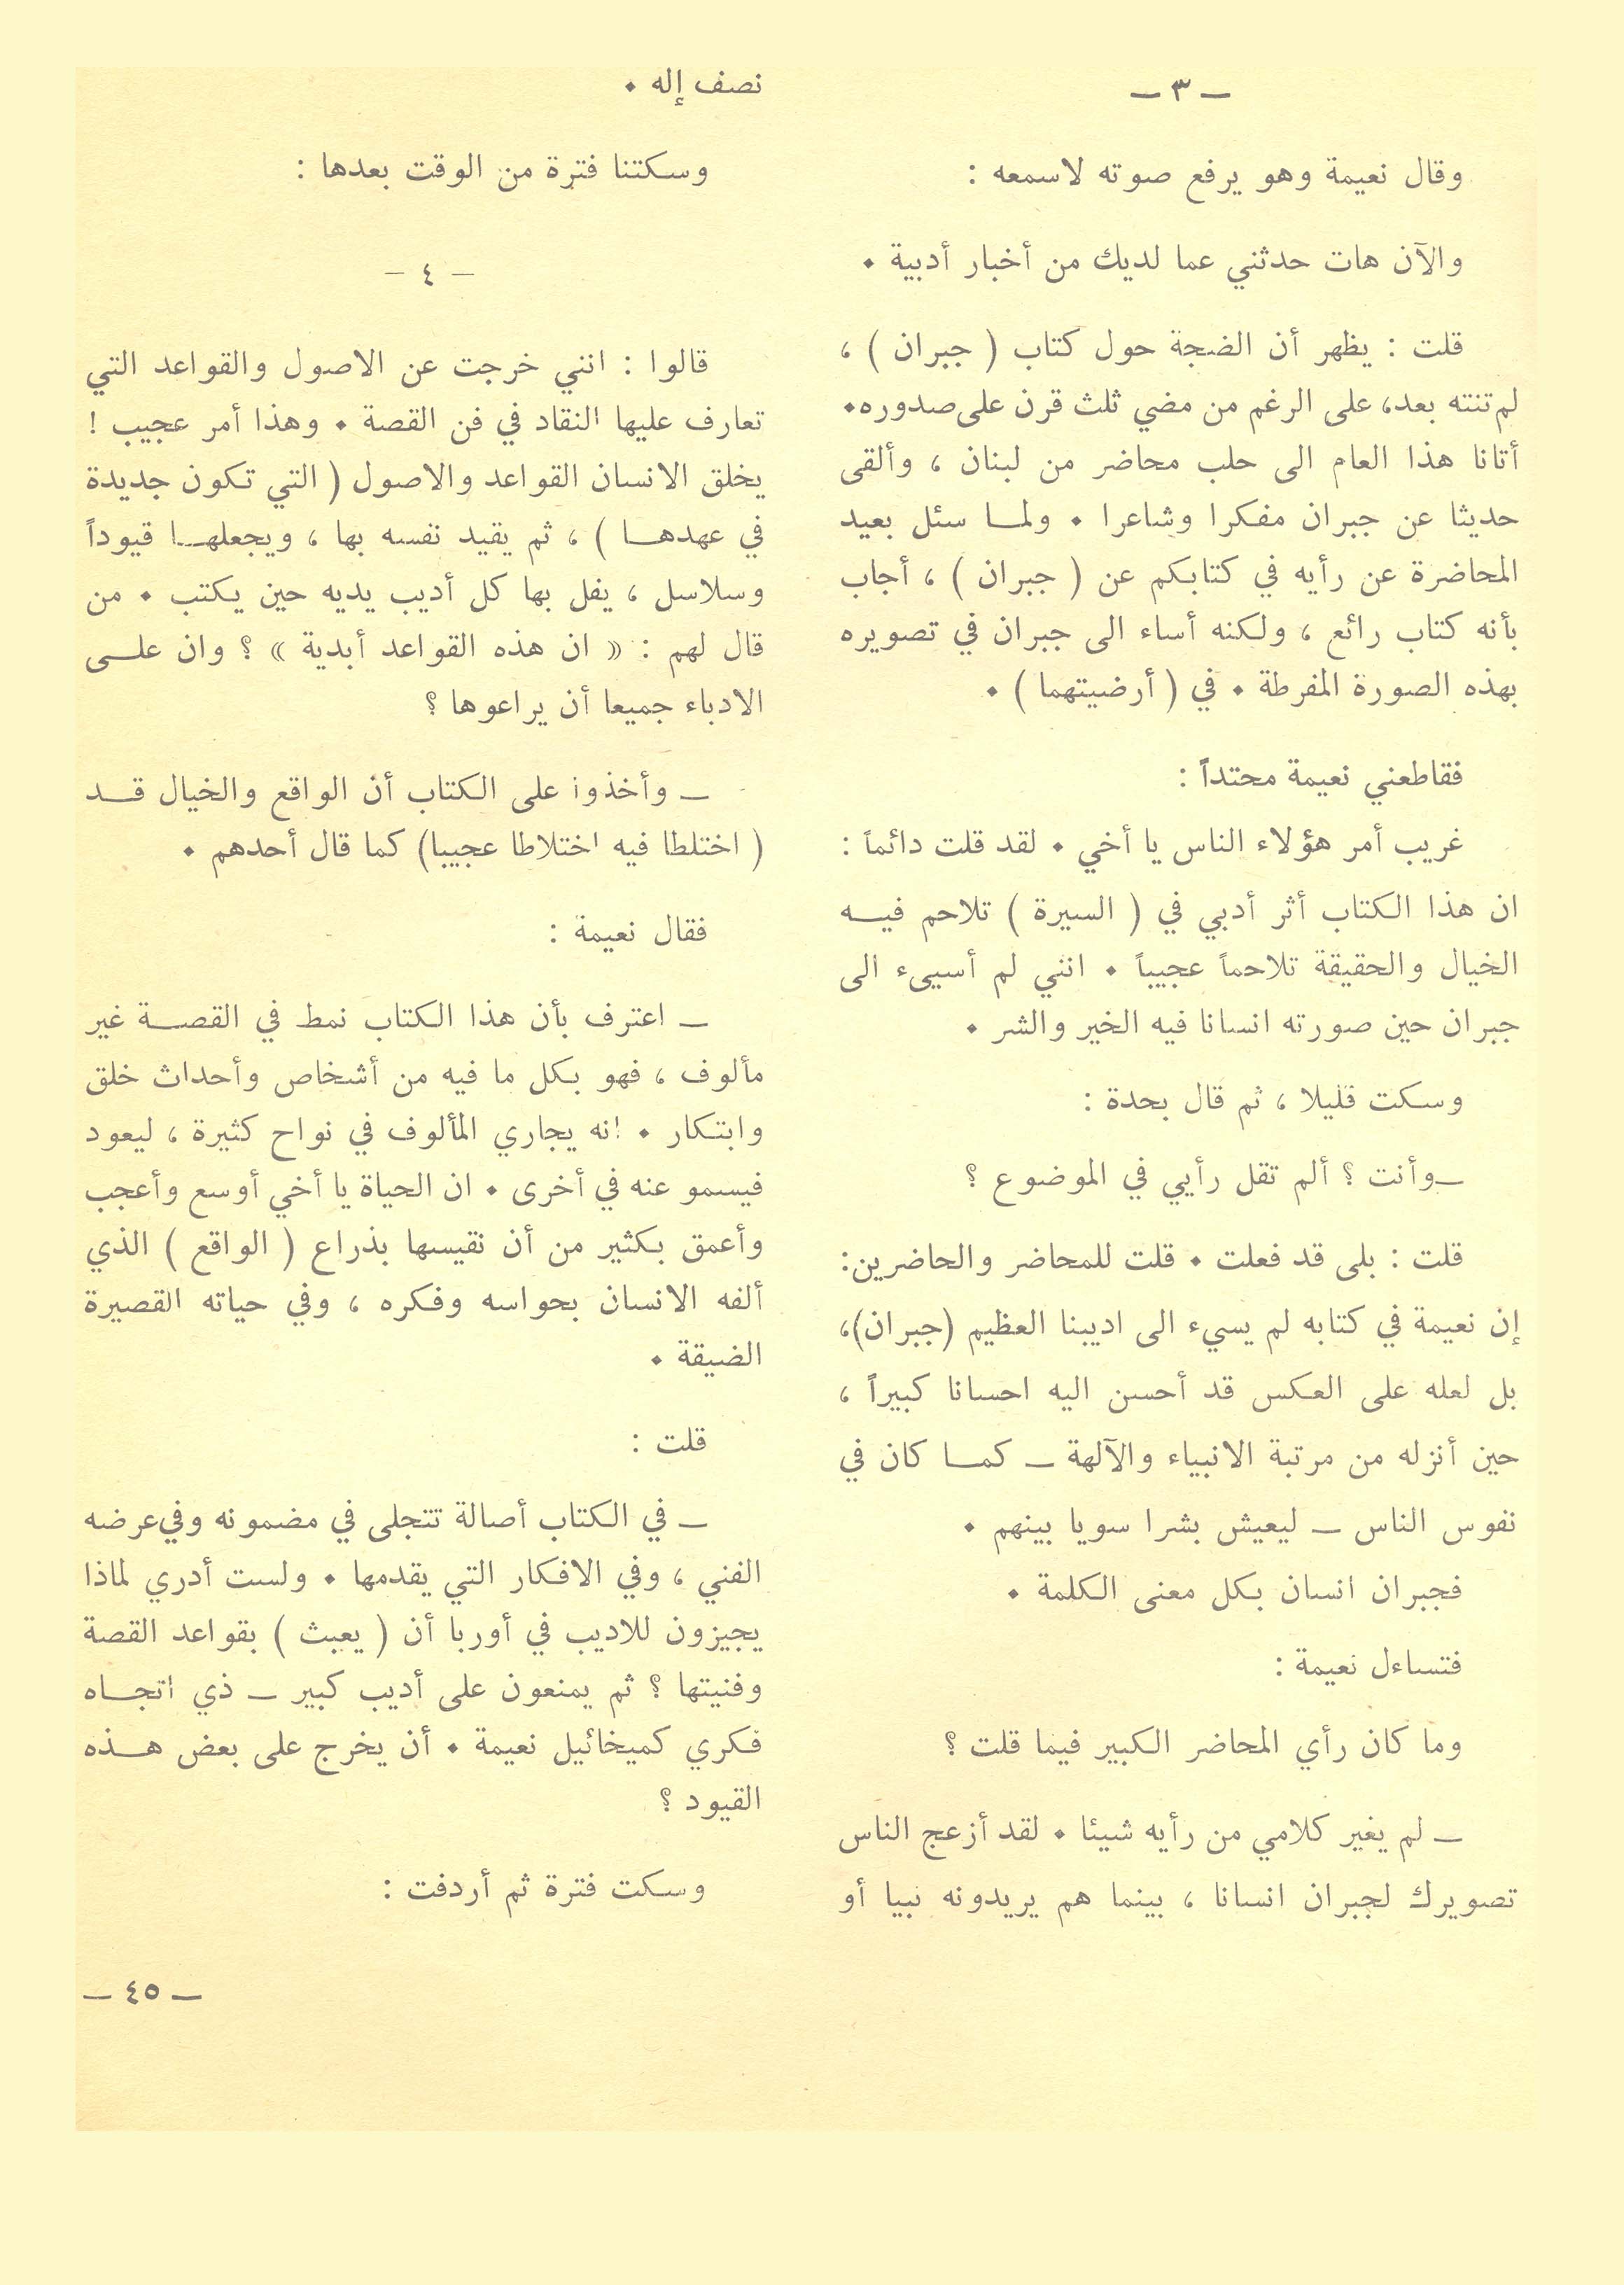 ـ ٣ ـ
وقال نعيمة وهو يرفع صوته لاسمعه :
والآن هات حدثني عما لديك من أخبار أدبية ٠
قلت : يظهر أن الضجة حول كتاب ( جبران ) ،
لم تنته بعد، على الرغم من مضي ثلث قرن على صدوره٠
أتانا هذا العام الى حلب محاضر من لبنان ، وألقى
حديثا عن جبران مفكرا وشاعرا ٠ ولما سئل بعيد
المحاضرة عن رأيه في كتابكم عن ( جبران ) ، أجاب
بأنه كتاب رائع ، ولكنه أساء الى جبران في تصويره
بهذه الصورة المفرطة ٠ في ( أرضيتهما ) ٠
فقاطعني نعيمة محتداً :
غريب أمر هؤلاء الناس يا أخي ٠ لقد قلت دائماً :
ان هذا الكتاب أثر أدبي في ( السيرة ) تلاحم فيه
الخيال والحقيقة تلاحماً عجيباً ٠ انني لم أسيىء الى
جبران حين صورته انسانا فيه الخير والشر ٠
وسكت قليلا ، ثم قال بحدة :
ـ وأنت ؟ ألم تقل رأيي في الموضوع ؟
قلت : بلى قد فعلت ٠ قلت للمحاضر والحاضرين:
إن نعيمة في كتابه لم يسيء الى اديبنا العظيم (جبران)،
بل لعله على العكس قد أحسن اليه احسانا كبيراً ،
حين أنزله من مرتبة الانبياء والآلهة ـ كما كان في
نفوس الناس ـ ليعيش بشرا سويا بينهم ٠
فجبران انسان بكل معنى الكلمة ٠
فتساءل نعيمة :
وما كان رأي المحاضر الكبير فيما قلت ؟
ـ لم يغير كلامي من رأيه شيئا ٠ لقد أزعج الناس
تصويرك لجبران انسانا ، بينما هم يريدونه نبيا أو
نصف إله ٠
وسكتنا فترة من الوقت بعدها :
ـ ٤ ـ
قالوا : انني خرجت عن الاصول والقواعد التي
تعارف عليها النقاد في فن القصة ٠ وهذا أمر عجيب !
يخلق الانسان القواعد والاصول ( التي تكون جديدة
في عهدها ) ، ثم يقيد نفسه بها ، ويجعلها قيوداً
وسلاسل ، يغل بها كل أديب يديه حين يكتب ٠ من
قال لهم : « ان هذه القواعد أبدية » ؟ وان على
الادباء جميعا أن يراعوها ؟
ـ وأخذوا على الكتاب أن الواقع والخيال قد
( اختلطا فيه اختلاطا عجيبا) كما قال أحدهم ٠
فقال نعيمة :
ـ اعترف بأن هذا الكتاب نمط في القصة غير
مألوف ، فهو بكل ما فيه من أشخاص وأحداث خلق
وابتكار ٠ انه يجاري المألوف في نواح كثيرة ، ليعود
فيسمو عنه في أخرى ٠ ان الحياة يا أخي أوسع وأعجب
وأعمق بكثير من أن نقيسها بذراع ( الواقع ) الذي
ألفه الانسان بحواسه وفكره ، وفي حياته القصيرة
الضيقة ٠
قلت :
ـ في الكتاب أصالة تتجلى في مضمونه وفي عرضه
الفني ، وفي الافكار التي يقدمها ٠ ولست أدري لماذا
يجيزون للاديب في أوربا أن ( يعبث ) بقواعد القصة
وفنيتها ؟ ثم يمنعون على أديب كبير ـ ذي اتجاه
فكري كميخائيل نعيمة ٠ أن يخرج على بعض هذه
القيود ؟
وسكت فترة ثم أردفت :
ـ ٤٥ ـ